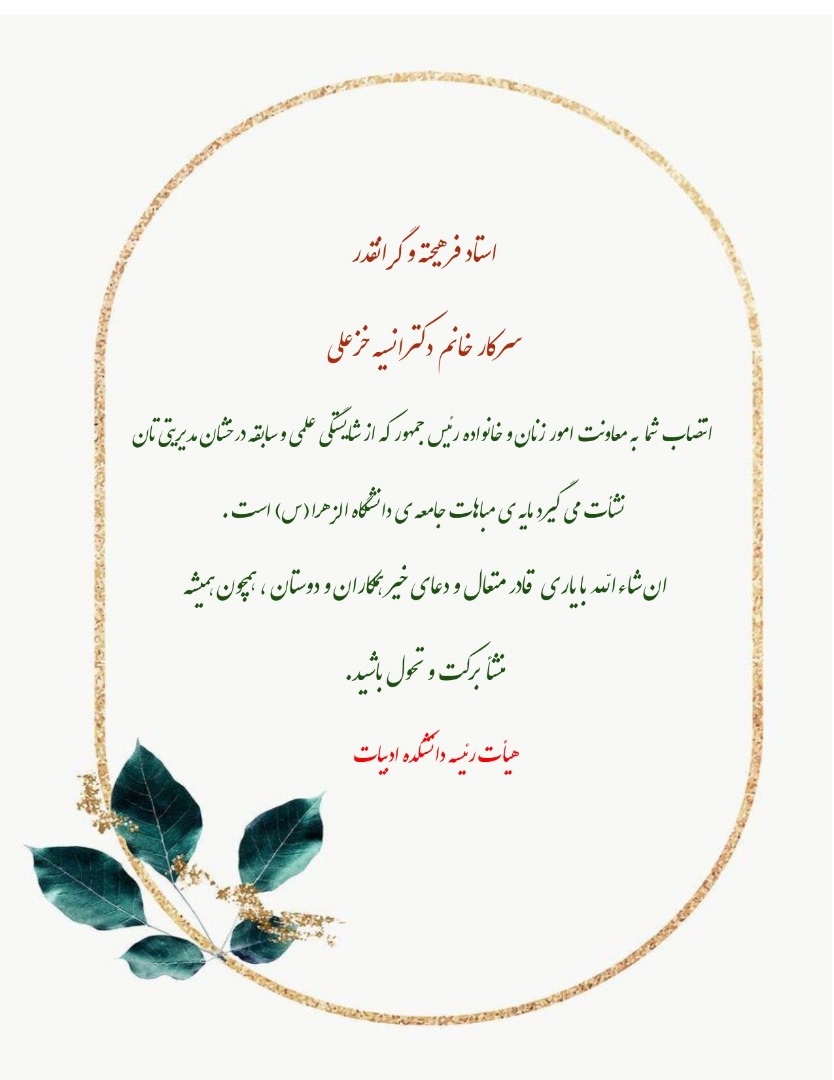 استاد فرهیخته و گرانقدر
سرکار خانم دکتر انسیه خزعلی
انتصاب شما به معاونت امور زنان و خانواده رئیس جمهور که از شایستگی علمی و سابقه درخشان مدیریتی تان
نشأت می گیرد مایه ی مباهات جامعه ی دانشگاه الزهرا (س) است .
ان شاء الله با یاری قادر متعال و دعای خیر همکاران و دوستان ، همچون همیشه
منشأ برکت و تحول باشید.
هیأت رئیسه دانشکده ادبیات